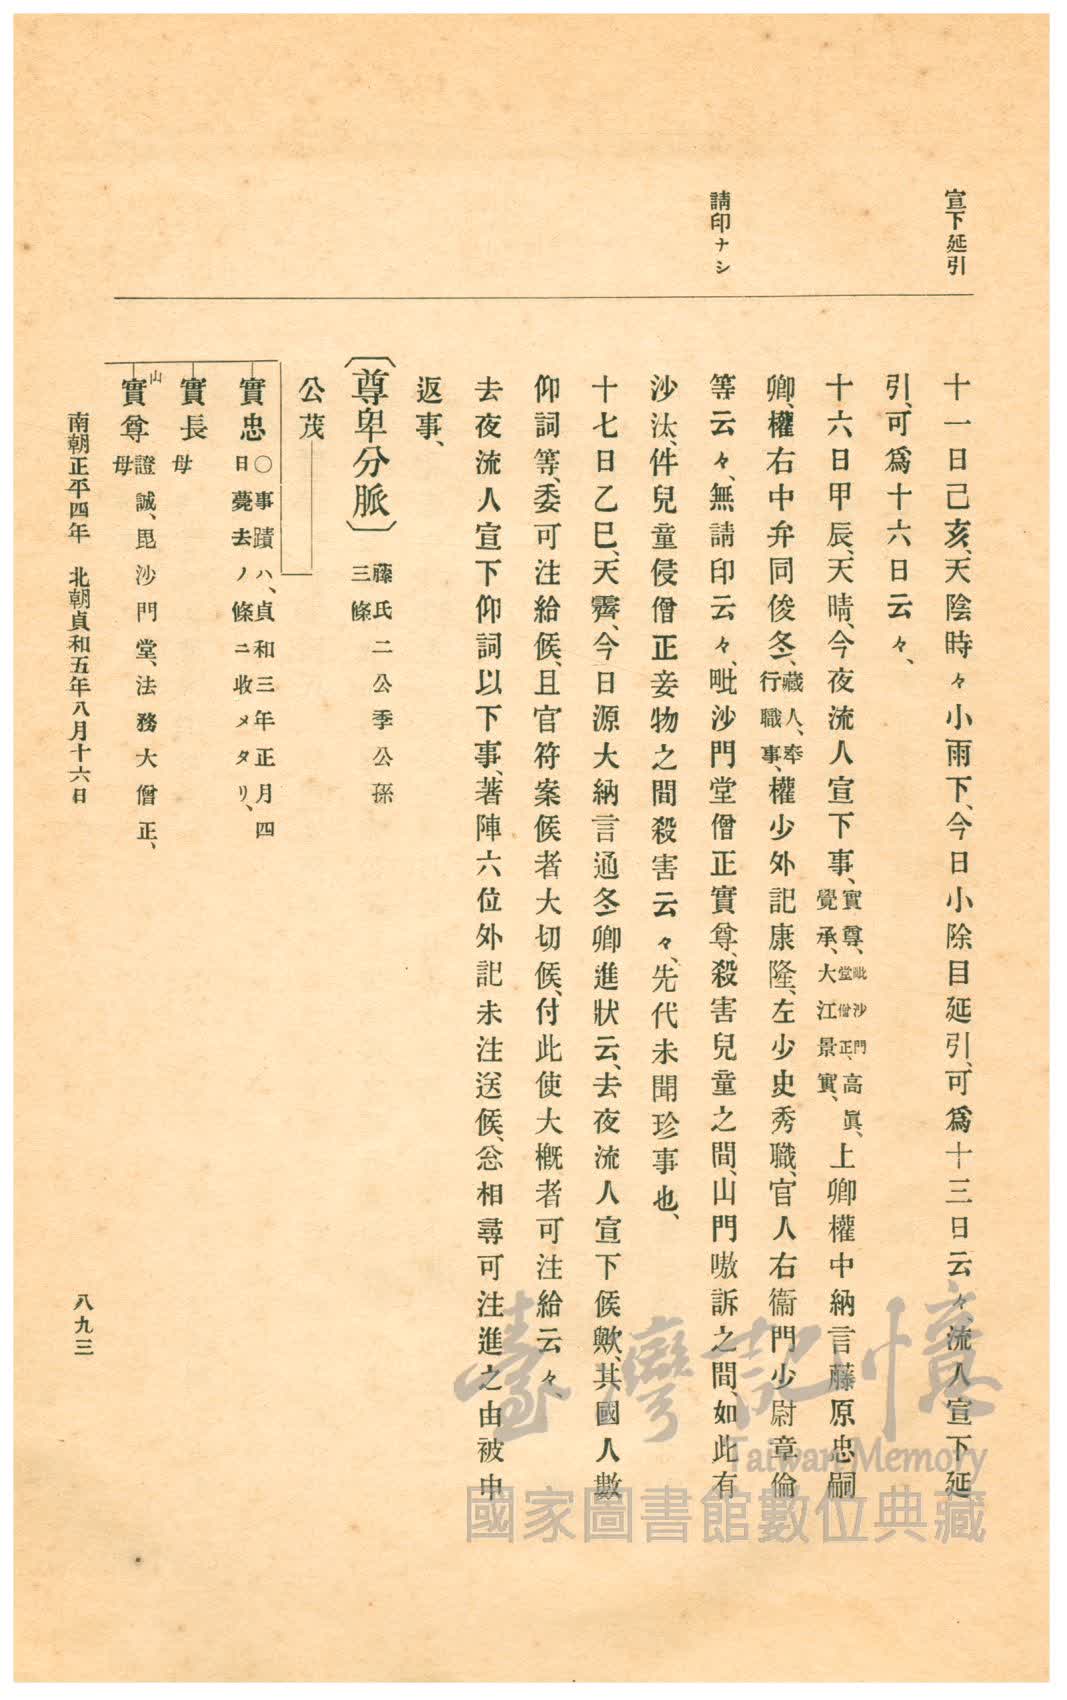 宣下延引
請印ナシ
十一日己亥、天陰時々小雨下、今日小除目延引、可爲十三日云々、流人宣下延
引、可爲十六日云々、
十六日甲辰、天晴、今夜流人宣下事、實尊、毗沙門堂僧正、高眞、覺承、大江景實、上卿權中納言藤原忠嗣
卿、權右中弁同俊冬、藏人、奉行職事、權少外記康隆、左少史秀職、官人右衞門少尉章倫
等云々、無請印云々、毗沙門堂僧正實尊、殺害兒童之間、山門嗷訴之間、如此有
沙汰、件兒童侵僧正妾物之間殺害云々、先代未聞珍事也、
十七日乙巳、天霽、今日源大納言通冬卿進狀云、去夜流人宣下候歟、其國人數
仰詞等、委可注給候、且官符案候者大切候、付此使大槪者可注給云々
去夜流人宣下仰詞以下事、著陣六位外記未注送候、忩相尋可注進之由被申
返事、
〔尊卑分脈〕藤氏二公季公孫
三條
公茂
實忠 〇事蹟ハ、貞和三年正月四
日薨去ノ條ニ收メタリ、
實長
母
山
實尊 證誠、毘沙門堂、法務大僧正、
母
南朝正平四年 北朝貞和五年八月十六日
八九三
臺灣記憶
Taiwan Memory
國家圖書館數位典藏